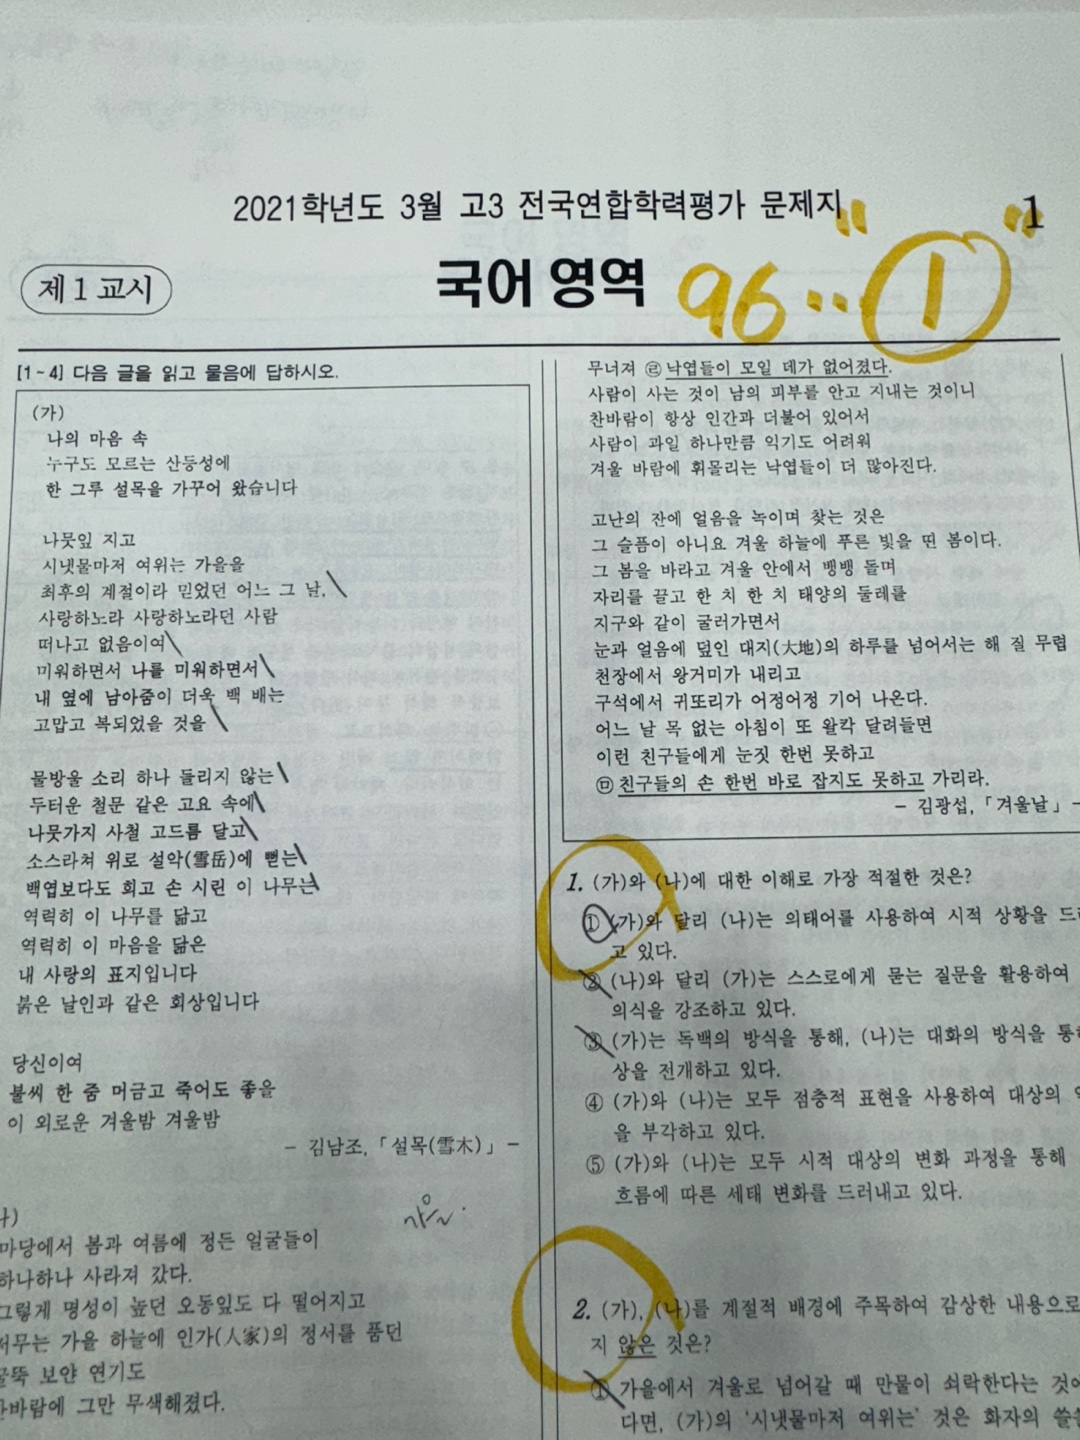 2021학년도 3월 고3 전국연합학력평가 문제지
1
제 1 교시
국어 영역
96 ‥ ①
[1~4] 다음 글을 읽고 물음에 답하시오.
(가)
나의 마음 속
누구도 모르는 산등성에
한 그루 설목을 가꾸어 왔습니다
나뭇잎 지고
시냇물마저 여위는 가을을
최후의 계절이라 믿었던 어느 그 날,
사랑하노라 사랑하노라던 사람
떠나고 없음이여
미워하면서 나를 미워하면서
내 옆에 남아줌이 더욱 백 배는
고맙고 복되었을 것을
물방울 소리 하나 들리지 않는
두터운 철문 같은 고요 속에
나뭇가지 사철 고드름 달고
소스라쳐 위로 설악(雪岳)에 뻗는
백엽보다도 희고 손 시린 이 나무는
역력히 이 나무를 닮고
역력히 이 마음을 닮은
내 사랑의 표지입니다
붉은 날인과 같은 회상입니다
당신이여
불씨 한 줌 머금고 죽어도 좋을
이 외로운 겨울밤 겨울밤
- 김남조, 「설목(雪木)」 -
마당에서 봄과 여름에 정든 얼굴들이
하나하나 사라져 갔다.
그렇게 명성이 높던 오동잎도 다 떨어지고
저무는 가을 하늘에 인가(人家)의 정서를 품던
굴뚝 보얀 연기도
찬바람에 그만 무색해졌다.
무너져 ㉣ 낙엽들이 모일 데가 없어졌다.
사람이 사는 것이 남의 피부를 안고 지내는 것이니
찬바람이 항상 인간과 더불어 있어서
사람이 과일 하나만큼 익기도 어려워
겨울 바람에 휘몰리는 낙엽들이 더 많아진다.
고난의 잔에 얼음을 녹이며 찾는 것은
그 슬픔이 아니요 겨울 하늘에 푸른 빛을 띤 봄이다.
그 봄을 바라고 겨울 안에서 뱅뱅 돌며
자리를 끌고 한 치 한 치 태양의 둘레를
지구와 같이 굴러가면서
눈과 얼음에 덮인 대지(大地)의 하루를 넘어서는 해 질 무렵
천장에서 왕거미가 내리고
구석에서 귀또리가 어정어정 기어 나온다.
어느 날 목 없는 아침이 또 왈칵 달려들면
이런 친구들에게 눈짓 한번 못하고
㉤ 친구들의 손 한번 바로 잡지도 못하고 가리라.
- 김광섭, 「겨울날」 -
1. (가)와 (나)에 대한 이해로 가장 적절한 것은?
① (가)와 달리 (나)는 의태어를 사용하여 시적 상황을
고 있다.
② (나)와 달리 (가)는 스스로에게 묻는 질문을 활용하여
의식을 강조하고 있다.
③ (가)는 독백의 방식을 통해, (나)는 대화의 방식을
상을 전개하고 있다.
④ (가)와 (나)는 모두 점층적 표현을 사용하여 대상의
을 부각하고 있다.
⑤ (가)와 (나)는 모두 시적 대상의 변화 과정을 통해
흐름에 따른 세태 변화를 드러내고 있다.
2. (가), (나)를 계절적 배경에 주목하여 감상한 내용으로
지 않은 것은?
① 가을에서 겨울로 넘어갈 때 만물이 쇠락한다는
다면, (가)의 '시냇물마저 여위는' 것은 화자의